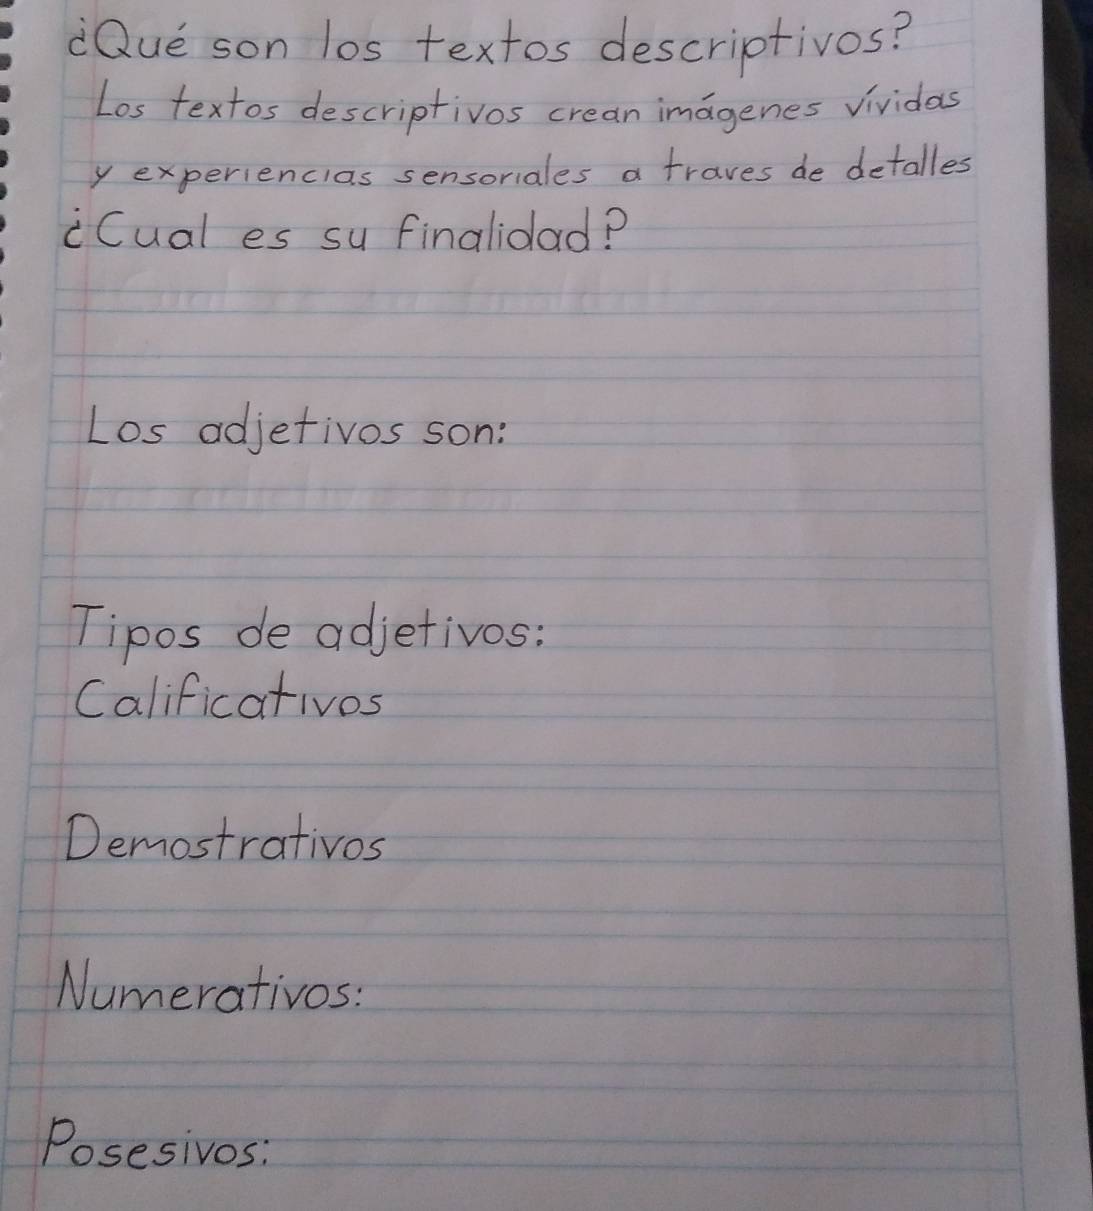 ¿Qué son los textos descriptivos?
Los textos descriptivos crean imágenes vívidas
y experiencias sensoriales a traves de detalles
¿Cual es su finalidad?
Los adjetivos son:
Tipos de adjetivos:
Calificativos
Demostrativos
Numerativos:
Posesivos: